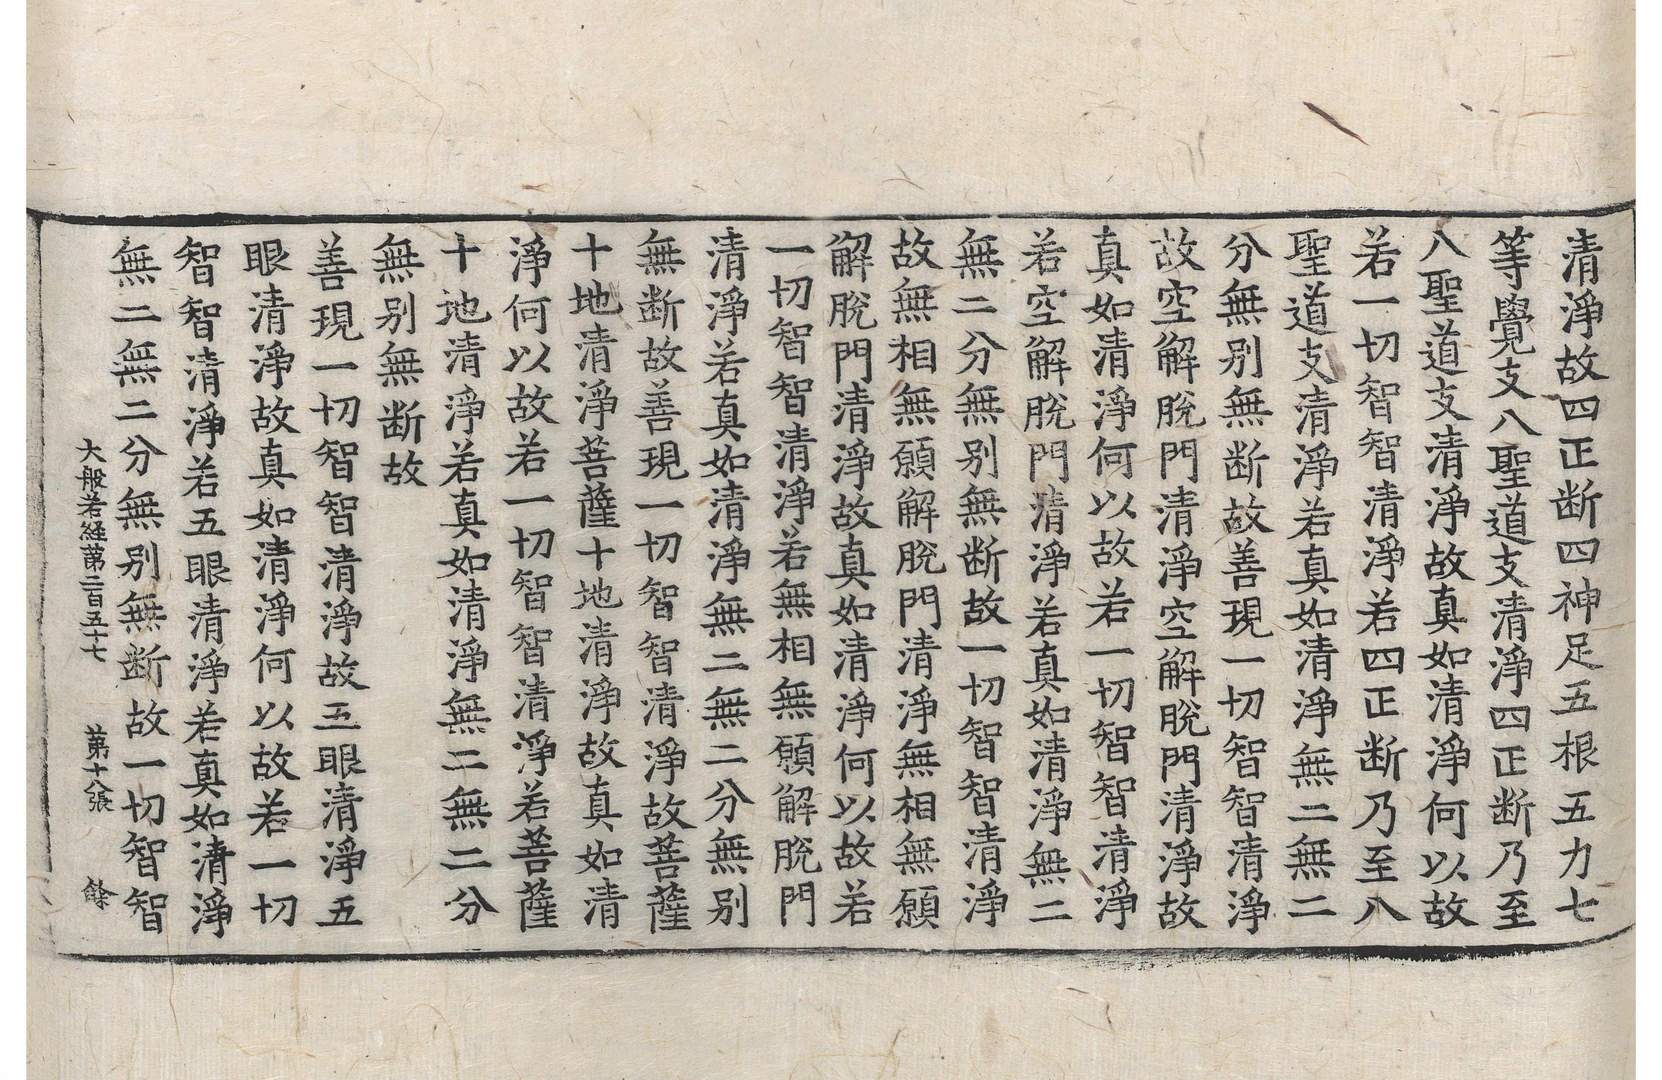 清淨故四正断四神足五根五力七
等覺支八聖道支清淨四正断乃至
八聖道支清淨故真如清淨何以故
若一切智智清淨若四正断乃至八
聖道支清淨若真如清淨無二無二
分無别無断故善現一切智智清淨
故空解脫門清淨空解脫門清淨故
真如清淨何以故若一切智智清淨
若空解脫門清淨若真如清淨無二
無二分無别無断故一切智智清淨
故無相無願解脫門清淨無相無願
解脫門清淨故真如清淨何以故若
一切智智清淨若無相無願解脫門
清淨若真如清淨無二無二分無别
無断故善現一切智智清淨故菩薩
十地清淨菩薩十地清淨故真如清
淨何以故若一切智智清淨若菩薩
十地清淨若真如清淨無二無二分
無别無断故
善現一切智智清淨故五眼清淨五
眼清淨故真如清淨何以故若一切
智智清淨若五眼清淨若真如清淨
無二無二分無别無断故一切智智
大般若経苐二百五十七 苐十八張 餘